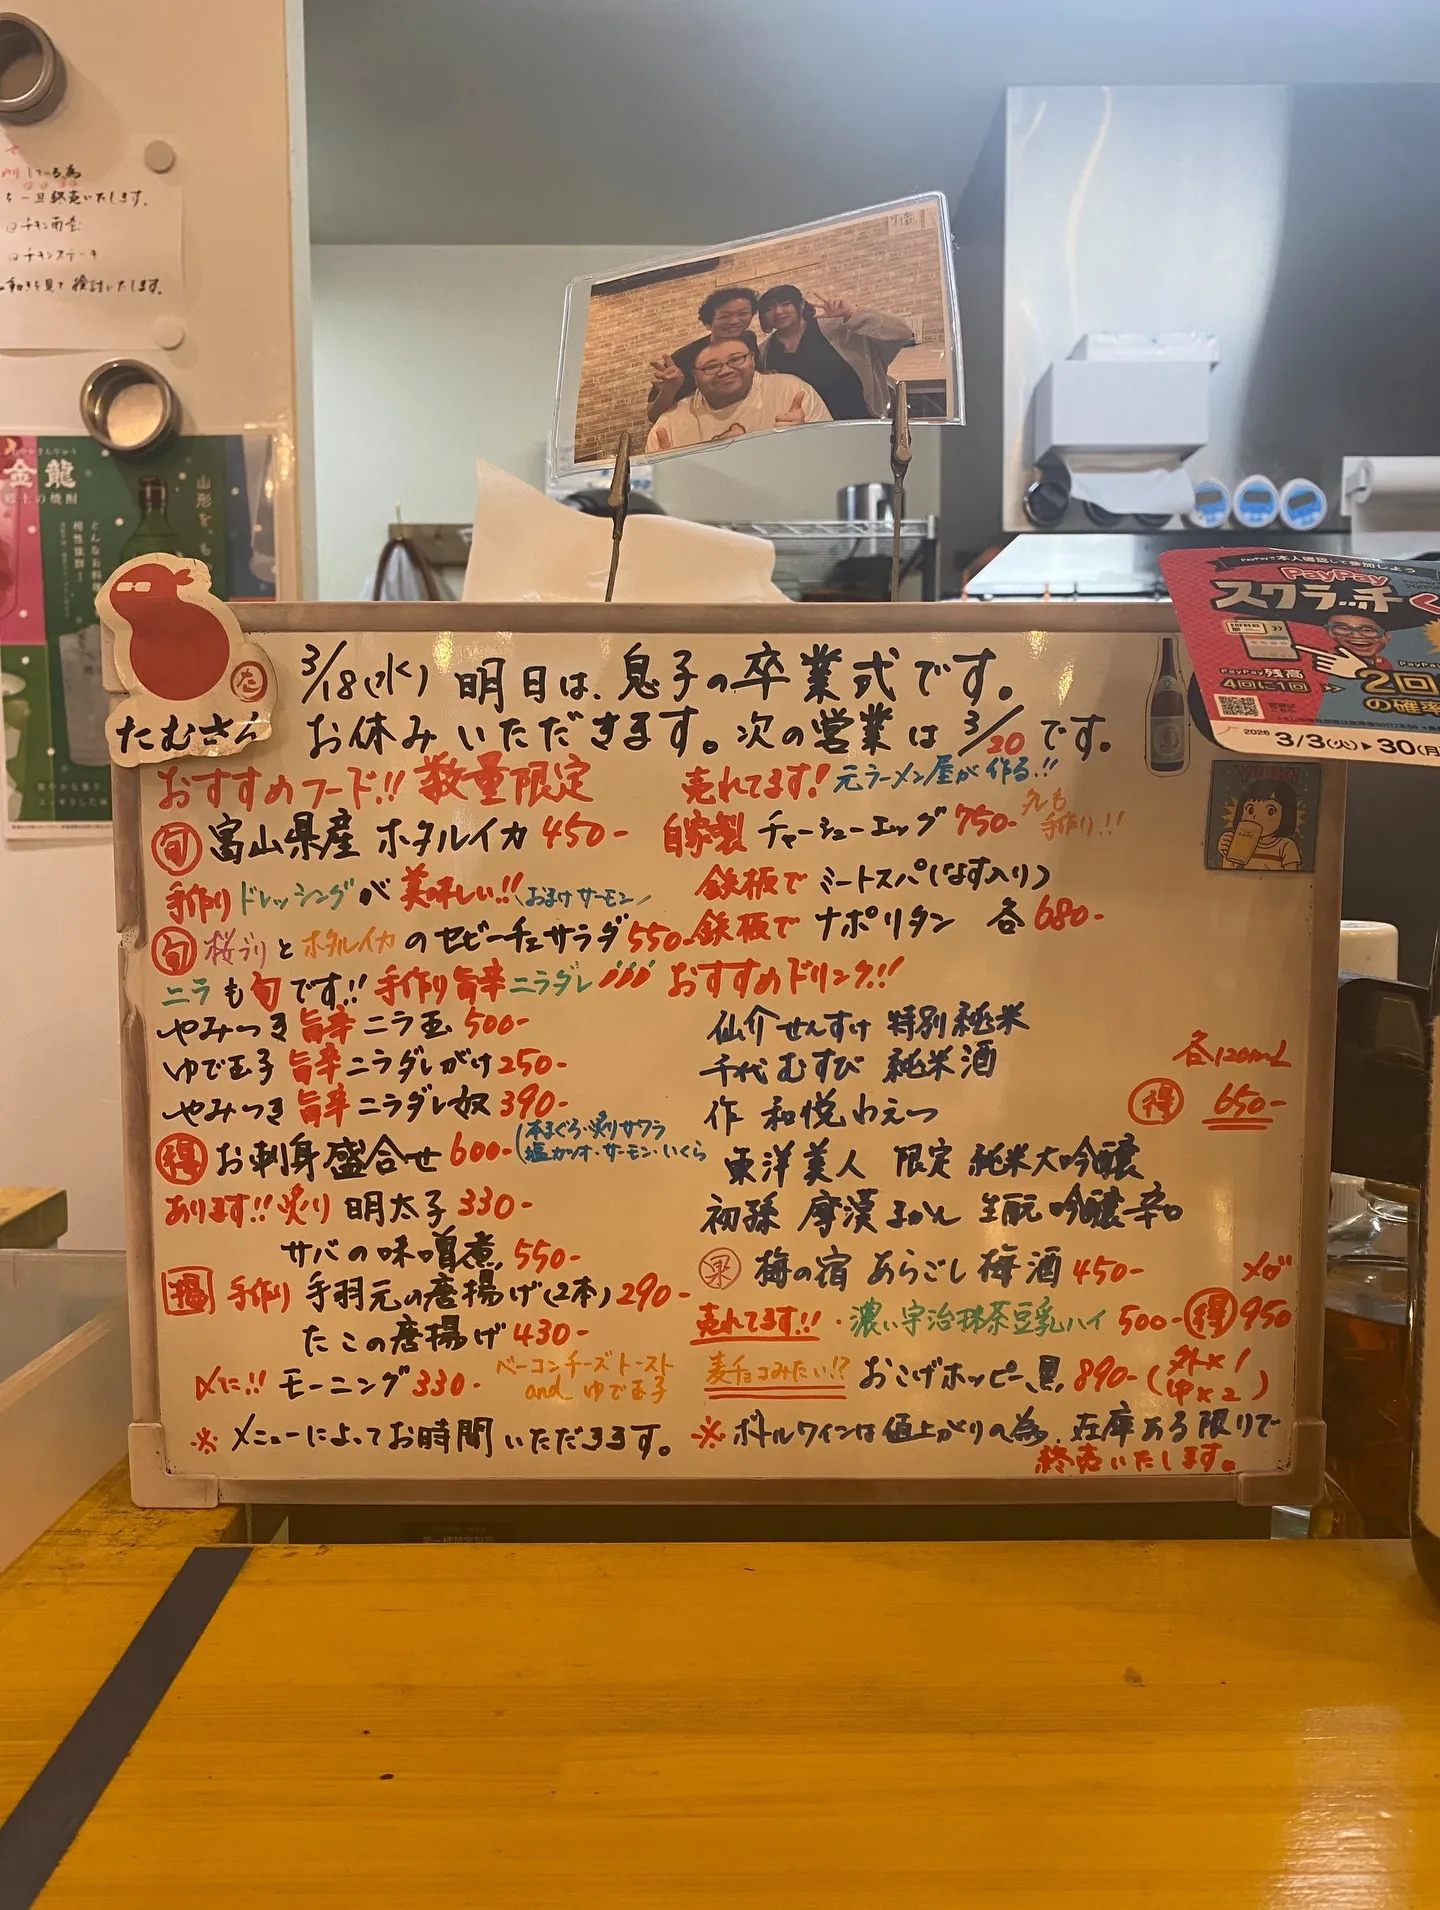 している為
一旦終売いたします。
@チキン南蛮
@チキンステーキ
を見て検討いたします。
金龍
郷土の焼酎
どんなお料理
相性抜群!
山形を、も
たむさん
PayPayで本人確認して参加しよう
PayPay
スクラッチく
PayPay残高
4回に1回
2回
の確率
2026 3/3(火)▶30(月)
YUKI
3/18(水) 明日は、息子の卒業式です。
お休みいただきます。次の営業は3/20です。
おすすめフード!! 数量限定
旬 富山県産 ホタルイカ 450-
手作りドレッシングが美味しい!! おまけサーモン
旬 桜ブリとホタルイカのセビーチェサラダ 550-
ニラも旬です!! 手作り旨辛ニラダレ
やみつき旨辛ニラ玉 500-
ゆで玉子 旨辛ニラダレがけ 250-
やみつき旨辛ニラダレ奴 390-
得 お刺身盛合せ 600- (本まぐろ・炙りサワラ
塩カツオ・サーモン・いくら
あります!! 炙り明太子 330-
サバの味噌煮 550-
揚 手作り 手羽元の唐揚げ(2本) 290-
たこの唐揚げ 430-
〆に!! モーニング 330- ベーコンチーズトースト
and ゆで玉子
※メニューによってお時間いただきます。
売れてます! 元ラーメン屋が作る!!
自家製 チャーシューエッグ 750- タレも
手作り!!
鉄板で ミートスパ(なす入り)
鉄板で ナポリタン 各680-
おすすめドリンク!!
仙介せんすけ 特別純米
千代むすび 純米酒
作 和悦わえつ
東洋美人 限定 純米大吟醸
初孫 摩漢まかん 生酛吟醸辛口
各120mL
得 650-
果 梅の宿 あらごし梅酒 450-
売れてます!!・濃い宇治抹茶豆乳ハイ 500- メガ
得 950
麦チョコみたい!? おこげホッピー、黒 890- (外×1
中×2)
※ボトルワインは値上がりの為、在庫ある限りで
終売いたします。